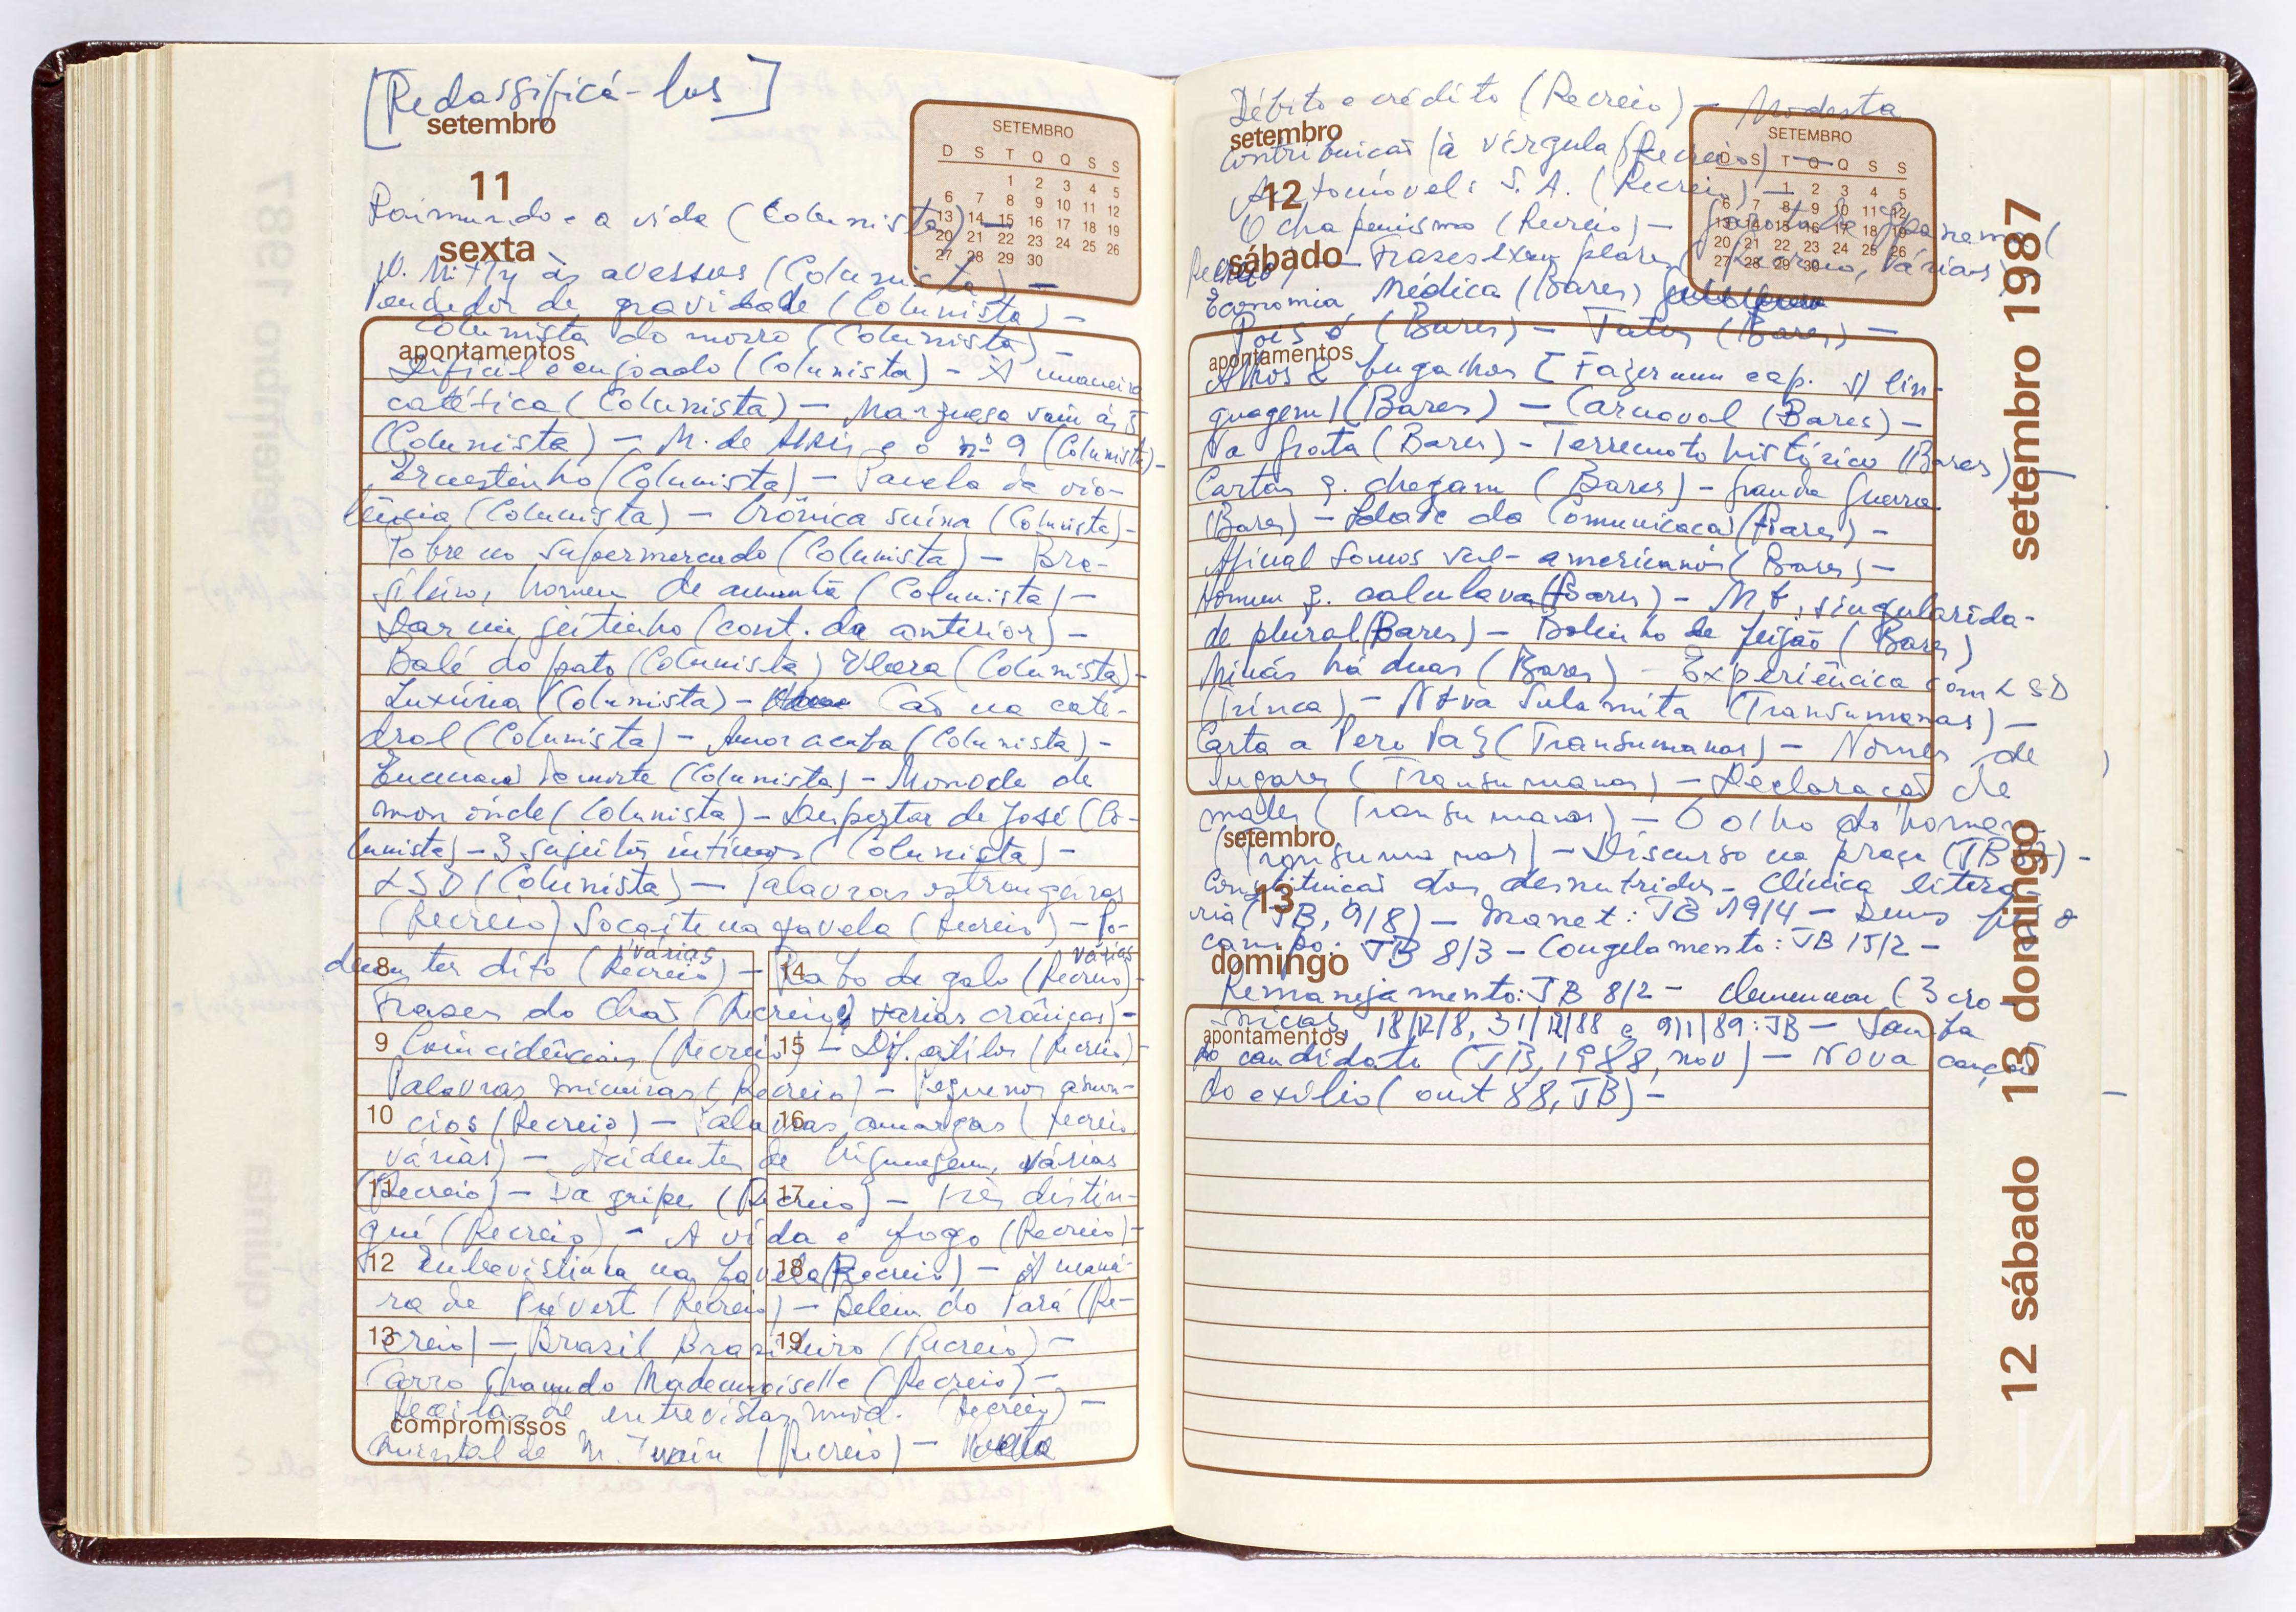 [Reclassificá-los]
setembro
11
sexta
SETEMBRO
D S T Q Q S S
1 2 3 4 5
6 7 8 9 10 11 12
13 14 15 16 17 18 19
20 21 22 23 24 25 26
27 28 29 30
Raimundo e a vida (Colunista) —
W. Mitty às avessas (Colunista) —
Vendedor de gravidade (Colunista) —
Colunista do morro (Colunista) —
apontamentos
Difícil e enjoado (Colunista) – À maneira
(Colunista) – Marquesa saiu às 5
(Colunista) – M. de Assis e o nº 9 (Colunista) –
Ernestinho (Colunista) – da vio-
lência (Colunista) – Crônica suína (Colunista) –
Pobre no supermercado (Colunista) – Bra-
sileiro, homem de amanhã (Colunista) –
Dar um jeitinho (cont. da anterior) –
Balé do pato (Colunista) (Colunista) –
Luxúria (Colunista) – Cão na cate-
dral (Colunista) – Amor acaba (Colunista) –
(Colunista) – Monode de
mon onde (Colunista) – Despertar de José (Co-
lunista) – 3 sujeitos íntimos (Colunista) –
LSD (Colunista) – Palavras estrangeiras
(Recreio) Soçaite na favela (Recreio) – Po-
deriam ter dito (Recreio) várias –
8
14
Rabo de galo (Recreio) várias –
Frases do chão (Recreio, várias crônicas) –
9 Coincidências (Recreio) – Dif. estilos (Recreio) –
15
Palavras mineiras (Recreio) – Pequenos anún-
10 cios (Recreio) – Palavras amargas (Recreio,
16
várias) – Acidentes de linguagem, várias
11
17
(Recreio) – Da gripe (Recreio) – Três distin-
gui (Recreio) – A vida é fogo (Recreio) –
12 Entrevistinha na favela (Recreio) – À manei-
18
ra de Prévert (Recreio) – Belém do Pará (Re-
13
19
creio) – Brasil Brasileiro (Recreio) –
Carro chamado Mademoiselle (Recreio) –
Receita de entrevistas mod. (Recreio) –
compromissos
Quintal de M. Twain (Recreio) –
Débito e crédito (Recreio) – Modesta
setembro
contribuição à vírgula (Recreio) –
12
sábado
SETEMBRO
D S T Q Q S S
1 2 3 4 5
6 7 8 9 10 11 12
13 14 15 16 17 18 19
20 21 22 23 24 25 26
27 28 29 30
Automóvel: S. A. (Recreio) –
O chapeuismo (Recreio) – Garota de Ipanema (
Recreio) – Frases exemplares (Recreio, várias)
Economia Médica (Bares)
Pois é (Bares) – Tatos (Bares) –
apontamentos
Alhos & bugalhos [Fazer um cap. s/ lin-
guagem] (Bares) – Carnaval (Bares) –
Na grota (Bares) – Terremoto histórico (Bares) –
Cartas q. chegam (Bares) – Grande Guerra
(Bares) – Idade da Comunicação (Bares) –
Afinal somos sul-americanos (Bares) –
Homem q. calculava (Bares) – MG, singularida-
de plural (Bares) – Bolinho de feijão (Bares)
Minas há duas (Bares) – Experiência com LSD
(Trinca) – Nova Sulamita (Transumanas) –
Carta a Pero Vaz (Transumanas) – Nomes de
lugares (Transumanas) – Declaração de
males (Transumanas) – O olho do homem
setembro
(Transumanas) – Discurso na praça (JB) –
Constituição dos desnutridos – Clínica literá-
13
ria (JB, 9/8) – Manet: JB 19/4 – Deus fez o
campo: JB 8/3 – Congelamento: JB 15/2 –
domingo
Remanejamento: JB 8/2 – Clemenceau (3 crô-
nicas, 18/12/8, 31/12/88 e 9/1/89: JB – Samba
apontamentos
do candidato (JB, 1988, nov) – Nova canção
do exílio (out 88, JB) –
12 sábado 13 domingo setembro 1987
IMS